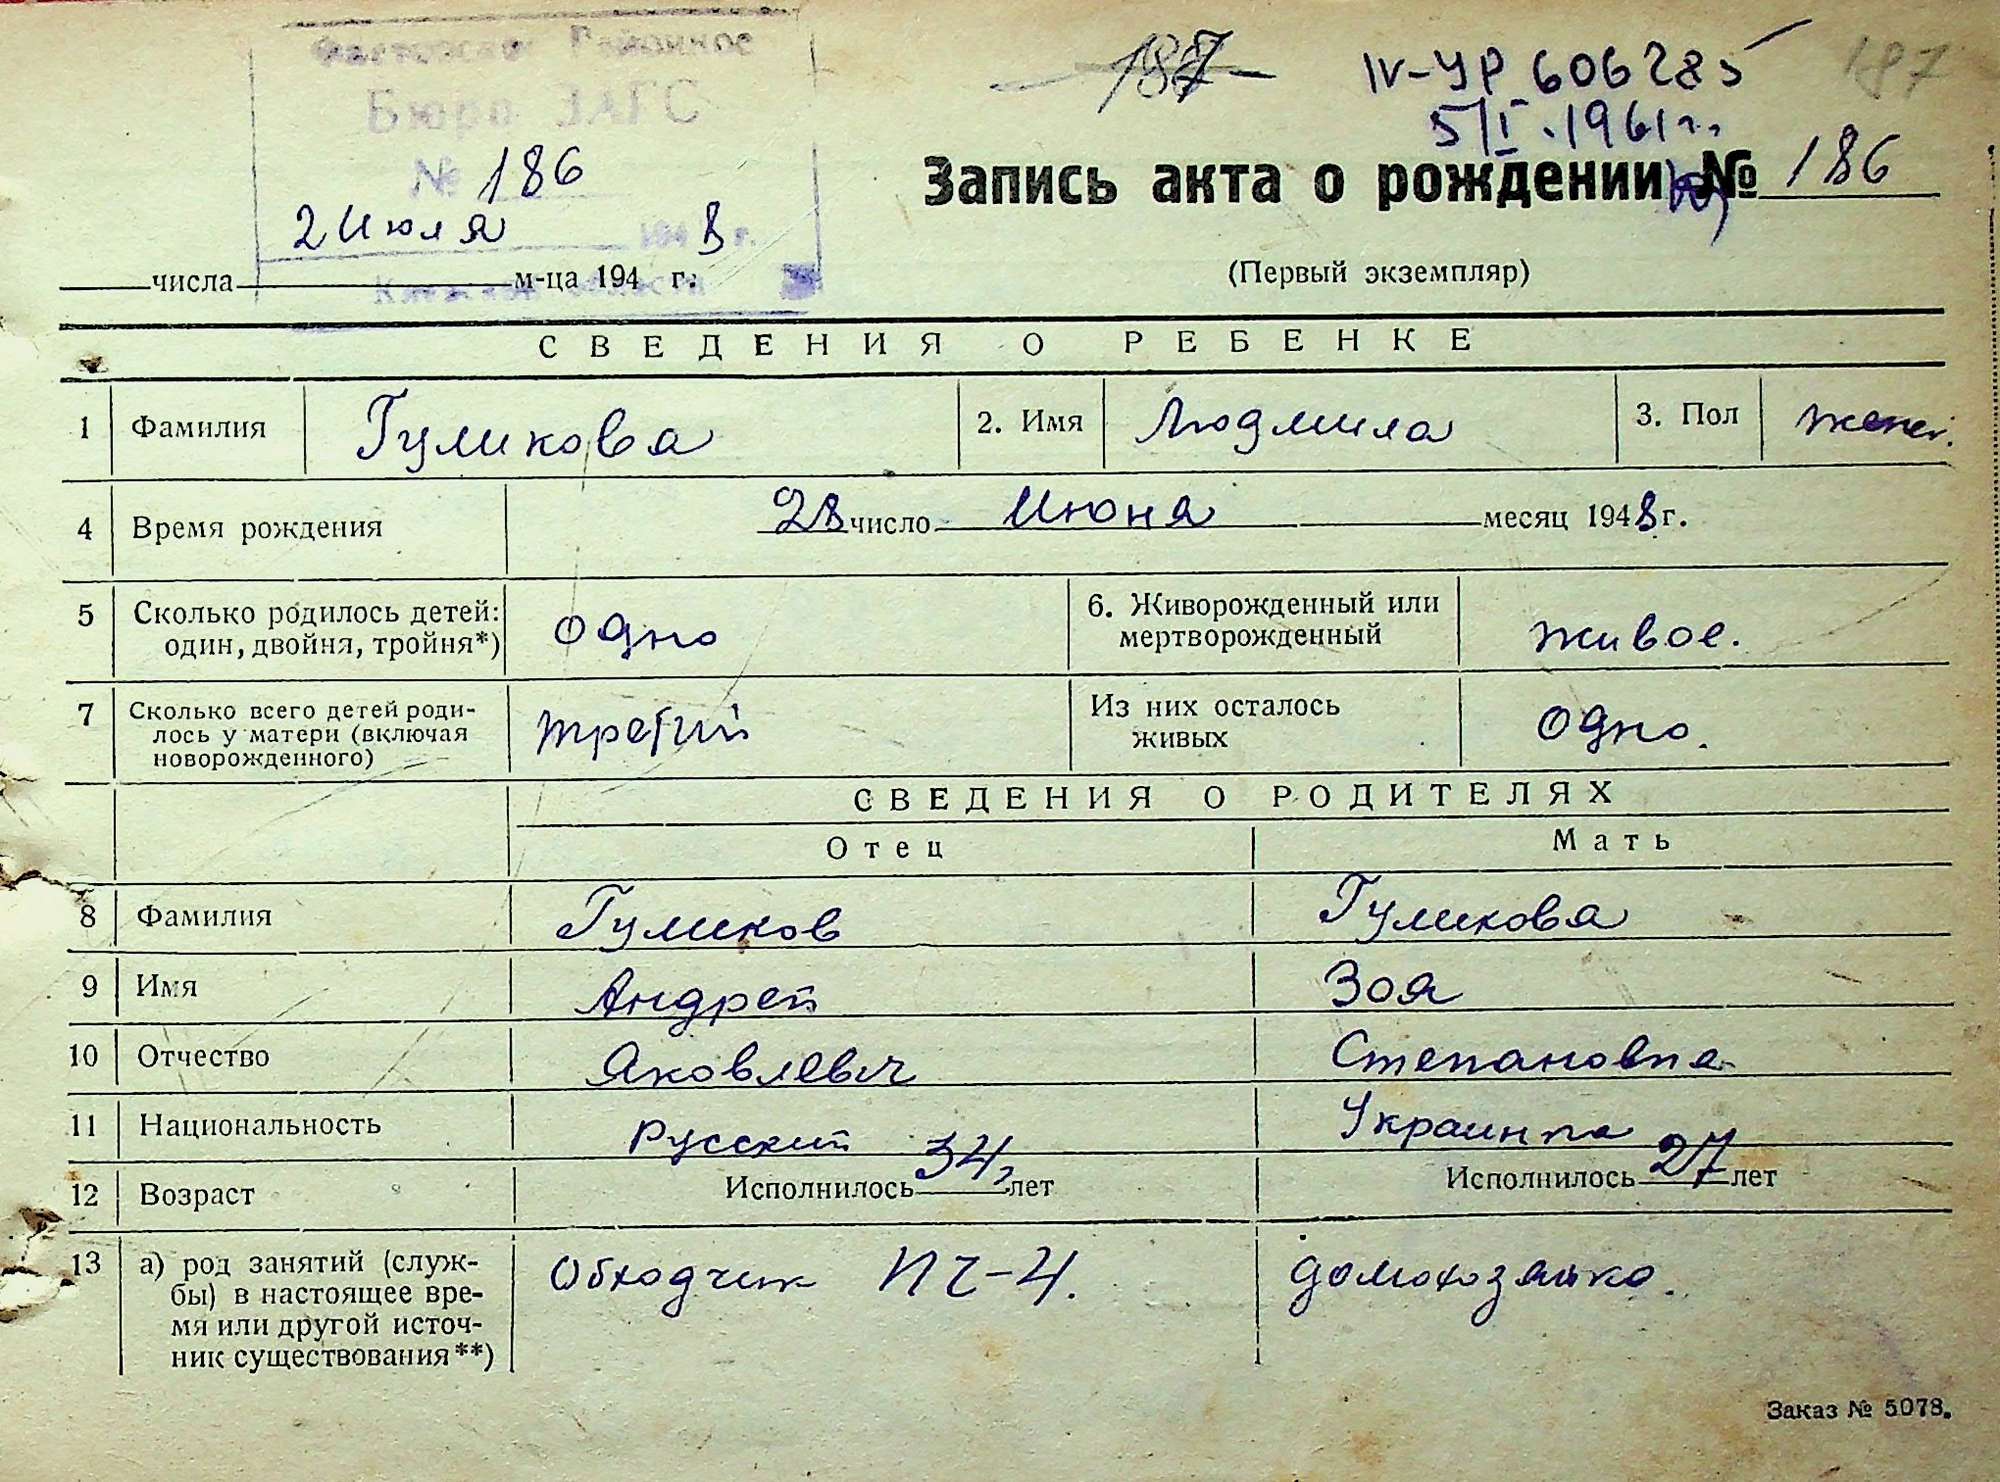 Фастовское Районное
Бюро ЗАГС
№ 186
2 Июля 1948 г.
Киевской области
187
187
IV-УР 606285
5/I.1961 г.
Запись акта о рождении № 186
числа м-ца 194 г.
(Первый экземпляр)
СВЕДЕНИЯ О РЕБЕНКЕ
1 Фамилия Гуликова 2. Имя Людмила 3. Пол женск.
4 Время рождения 28 число Июня месяц 1948 г.
5 Сколько родилось детей: один, двойня, тройня*) одно 6. Живорожденный или мертворожденный живое.
7 Сколько всего детей родилось у матери (включая новорожденного) третий Из них осталось живых одно.
СВЕДЕНИЯ О РОДИТЕЛЯХ
Отец Мать
8 Фамилия Гуликов Гуликова
9 Имя Андрей Зоя
10 Отчество Яковлевич Степановна
11 Национальность Русский Украинка
12 Возраст Исполнилось 34 лет Исполнилось 27 лет
13 а) род занятий (служ-
бы) в настоящее вре-
мя или другой источ-
ник существования**)
Обходчик ПЧ-4. домохозяйка.
Заказ № 5078.